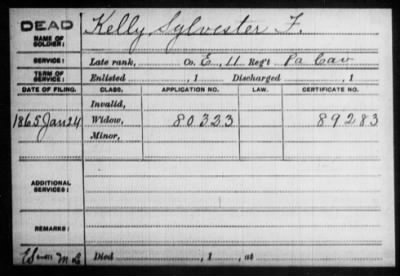 DEAD
NAME OF SOLDIER: Kelly Sylvester F.
SERVICE: Late rank, Co. E, 11 Reg't Pa Cav
TERM OF SERVICE: Enlisted , 1 Discharged , 1
DATE OF FILING. CLASS. APPLICATION NO. LAW. CERTIFICATE NO.
Invalid,
1865 Jan 24 Widow, 80323 89283
Minor,
ADDITIONAL SERVICES:
REMARKS:
Died , 1 , at